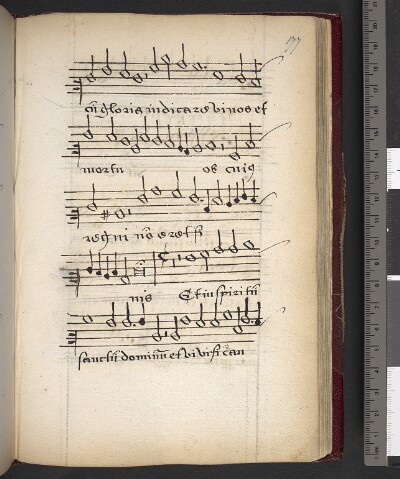 cū gloria iudicare vivos et
mortu os cuiꝰ
regni nō erit fi
nis Et in spiritū
sanctū dominū et vivifican